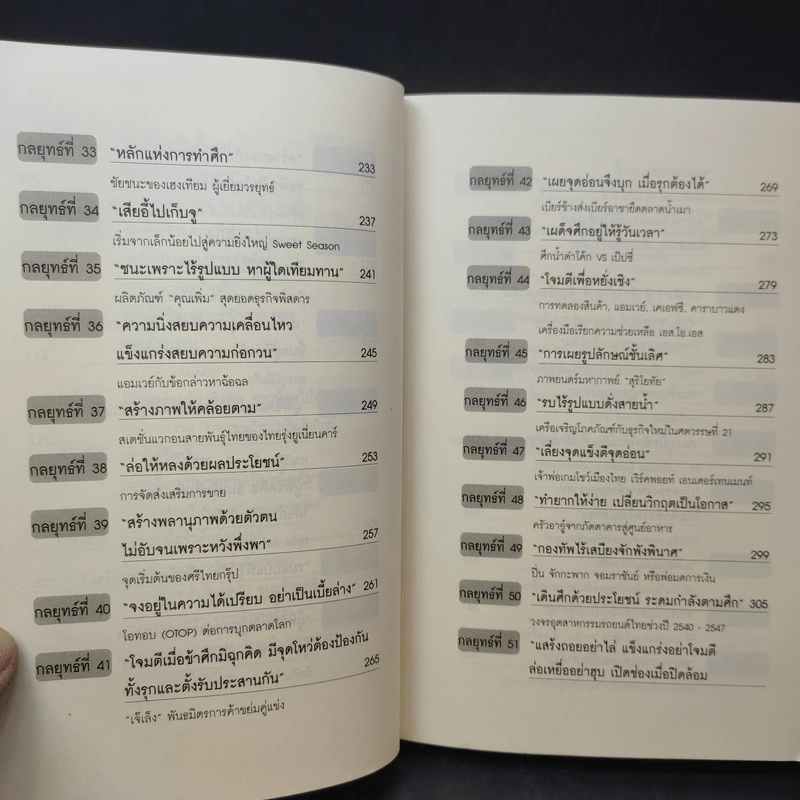 กลยุทธ์ที่ 33 "หลักแห่งการทำศึก" 233
ชัยชนะของเฮงเทียม ผู้เยี่ยมวรยุทธ์
กลยุทธ์ที่ 34 "เสียอี้ไปเก็บจู" 237
เริ่มจากเล็กน้อยไปสู่ความยิ่งใหญ่ Sweet Season
กลยุทธ์ที่ 35 "ชนะเพราะไร้รูปแบบ หาผู้ใดเทียมทาน" 241
ผลิตภัณฑ์ "คุณเพิ่ม" สุดยอดธุรกิจพิสดาร
กลยุทธ์ที่ 36 "ความนิ่งสยบความเคลื่อนไหว
แข็งแกร่งสยบความก่อกวน" 245
แอมเวย์กับข้อกล่าวหาฉ้อฉล
กลยุทธ์ที่ 37 "สร้างภาพให้คล้อยตาม" 249
สเตชั่นแวกอนสายพันธุ์ไทยของไทยรุ่งยูเนี่ยนคาร์
กลยุทธ์ที่ 38 "ล่อให้หลงด้วยผลประโยชน์" 253
การจัดส่งเสริมการขาย
กลยุทธ์ที่ 39 "สร้างพลานุภาพด้วยตัวตน
ไม่อับจนเพราะหวังพึ่งพา" 257
จุดเริ่มต้นของศรีไทยกรุ๊ป
กลยุทธ์ที่ 40 "จงอยู่ในความได้เปรียบ อย่าเป็นเบี้ยล่าง" 261
โอทอบ (OTOP) ต่อการบุกตลาดโลก
กลยุทธ์ที่ 41 "โจมตีเมื่อข้าศึกมิฉุกคิด มีจุดโหว่ต้องป้องกัน
ทั้งรุกและตั้งรับประสานกัน" 265
"เจ๊เล้ง" พันธมิตรการค้าขย่มคู่แข่ง
กลยุทธ์ที่ 42 "เผยจุดอ่อนจึงบุก เมื่อรุกต้องได้" 269
เบียร์ช้างส่งเบียร์อาชายึดตลาดน้ำเมา
กลยุทธ์ที่ 43 "เผด็จศึกอยู่ให้รู้วันเวลา" 273
ศึกน้ำดำโค้ก VS เป๊ปซี่
กลยุทธ์ที่ 44 "โจมตีเพื่อหยั่งเชิง" 279
การทดลองสินค้า, แอมเวย์, เคเอฟซี, คาราบาวแดง
เครื่องมือเรียกความช่วยเหลือ เอส.โอ.เอส
กลยุทธ์ที่ 45 "การเผยรูปลักษณ์ชั้นเลิศ" 283
ภาพยนตร์มหากาพย์ "สุริโยทัย"
กลยุทธ์ที่ 46 "รบไร้รูปแบบดั่งสายน้ำ" 287
เครือเจริญโภคภัณฑ์กับธุรกิจใหม่ในศตวรรษที่ 21
กลยุทธ์ที่ 47 "เลี่ยงจุดแข็งตีจุดอ่อน" 291
เจ้าพ่อเกมโชว์เมืองไทย เวิร์คพอยท์ เอนเตอร์เทนเมนท์
กลยุทธ์ที่ 48 "ทำยากให้ง่าย เปลี่ยนวิกฤตเป็นโอกาส" 295
ครัวอาอู๋จากภัตตาคารสู่ศูนย์อาหาร
กลยุทธ์ที่ 49 "กองทัพไร้เสบียงจักพังพินาศ" 299
ปิ่น จักกะพาก จอมราชันย์ หรือพ่อมดการเงิน
กลยุทธ์ที่ 50 "เดินศึกด้วยประโยชน์ ระดมกำลังตามศึก" 305
วงจรอุตสาหกรรมรถยนต์ไทยช่วงปี 2540 - 2547
กลยุทธ์ที่ 51 "แสร้งถอยอย่าไล่ แข็งแกร่งอย่าโจมตี
ล่อเหยื่ออย่าฮุบ เปิดช่องเมื่อปิดล้อม